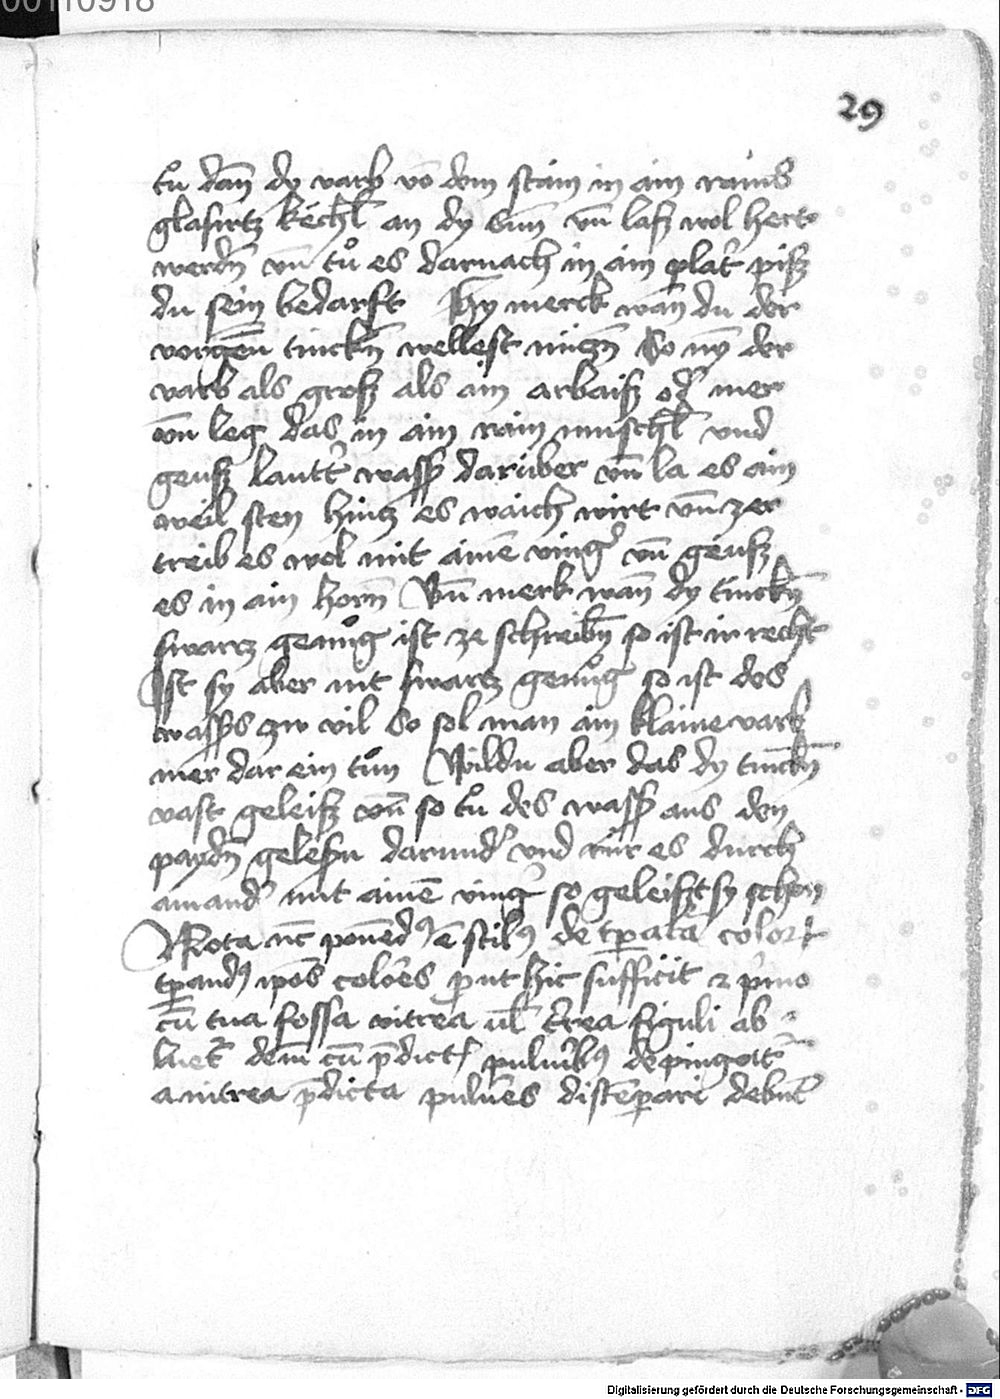 00110918
29
tů dan̄ dy varb võ dem stain in ain rains
glasirtz kechl̄ an dy sun̄ vn̄ lass wol hert
werdn̄ vn̄ tů es darnach in ain plat' piss
du sein bedarft Hy merck wan̄ du der
vorgen̄ tinckn̄ wellest so ny der
varb als gross als ain arbaiss od' mer
vn̄ leg das in ain rain muschl̄ vnd
geuss lautt' wass' darüber vn̄ la es ain
weil sten hintz es waich wirt vn̄ zer
treib es wol mit aine͂ ving' vn̄ geuss
es in ain horn̄ Vn̄ merk wan̄ dy tinckn̄
swartz genug ist ze schreibn̄ so ist ir recht
Ist sy aber nit swartz genůg so ist des
wass's zw vil So sol man ain klaine varb
mer dar ein tůn Wildu aber das dy tinckn̄
vast geleiss vn̄ so tů des wass' aus den
paydn̄ gelesn̄ darund' vnd rür es durch
ainand' mit aine͂ ving' so geleisst sy schon
Nota de color
colores hic sufficit
cū tua fossa vitrea vl' t'rea figuli ab
cū p̄dict
a vitrea p̄dicta pulu'es distēpari debēt
Digitalisierung gefördert durch die Deutsche Forschungsgemeinschaft - DFG